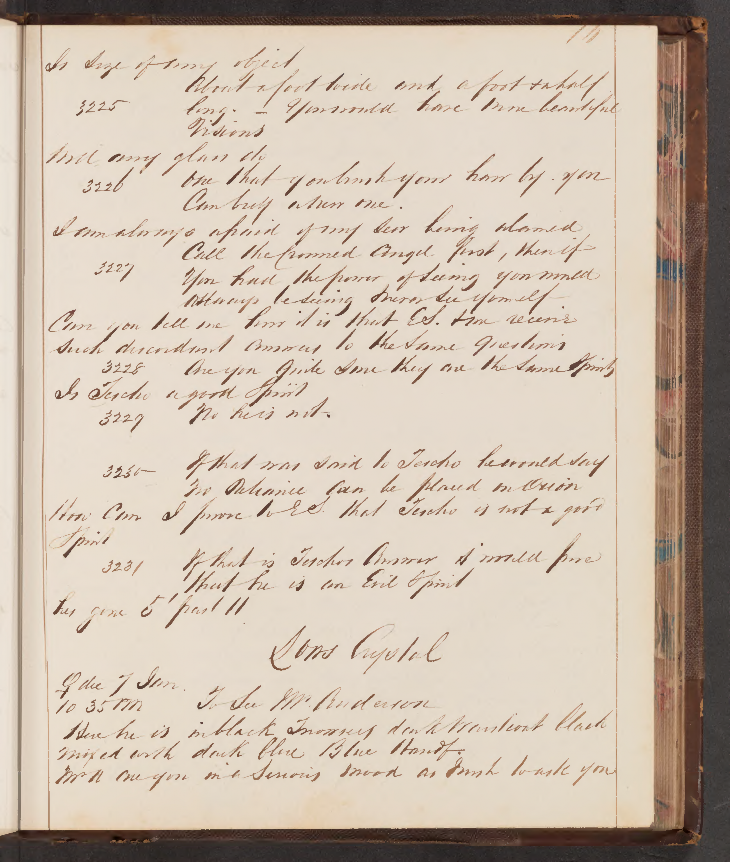 Is size of any object
About a foot wide and a foot & a half
3225 long. – You would have more beautiful
Visions
Wd any glass do
3226 One that you brush your hair by. you
Can buy a new one.
I am always afraid of my being alarmed
Call the Crowned Angel first, then if
3227 You had the power of seeing you would
Always be seeing never see yourself
Can you tell me how it is that E.S. & me receive
Such discordant Answers to the Same Questions
3228 Are you quite sure they are the Same Spirits
Is Tescho a good Spirit
3229 No he is not.
3230 If that was said to Tescho he would say
No Reliance can be placed on Orion
How Can I prove to E.S. that Tescho is not a good
Spirit
3231 If that is Teschos Answer it would prove
that he is an Evil Spirit
hes gone 5 past 11
Crystal
die 7 Jan.
10 35 PM To See Mr. Anderson
Here he is in black Trousers dark Waistcoat black
mixed with dark blue Blue Handf.
Mr A are you in a Serious mood as I wish to ask you